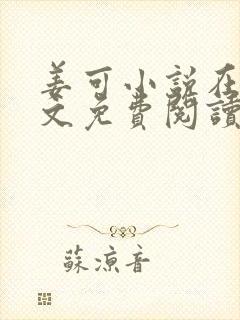 姜可小说在
文免費閱讀
蘇涼音